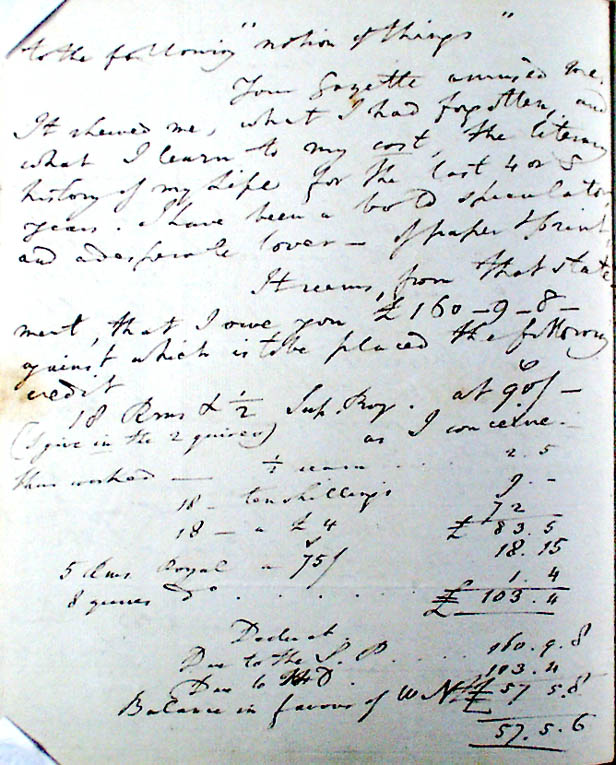 to the following "notion of things"
Your Gazette amused me.
It shewed me, what I had forgotten, and
what I learn to my cost, the literary
history of my Life for the last 4 or 5
years. I have been a bold speculator
and a desperate lover – of paper & print
It seems, from that state
ment, that I owe you £160–9–8–
against which is to be placed the following
credit
18 Rms & ½ Sup. Roy. at 90/–
(I give in the 2 quires) as I conceive.
thus worked — ½ ream . . . 2. 5
18 – ten shillings 9. –
18 — a £4 72
£ 83. 5
5 Rms Royal a 75/ 18. 15
8 quires Do . . . . 1. 4
£ 103. 4
Deduct.
Due to the S. P. . . . 160. 9. 8
Due to D. . 103. 4
Balance in favour of W N £57 5. 8
57. 5. 6